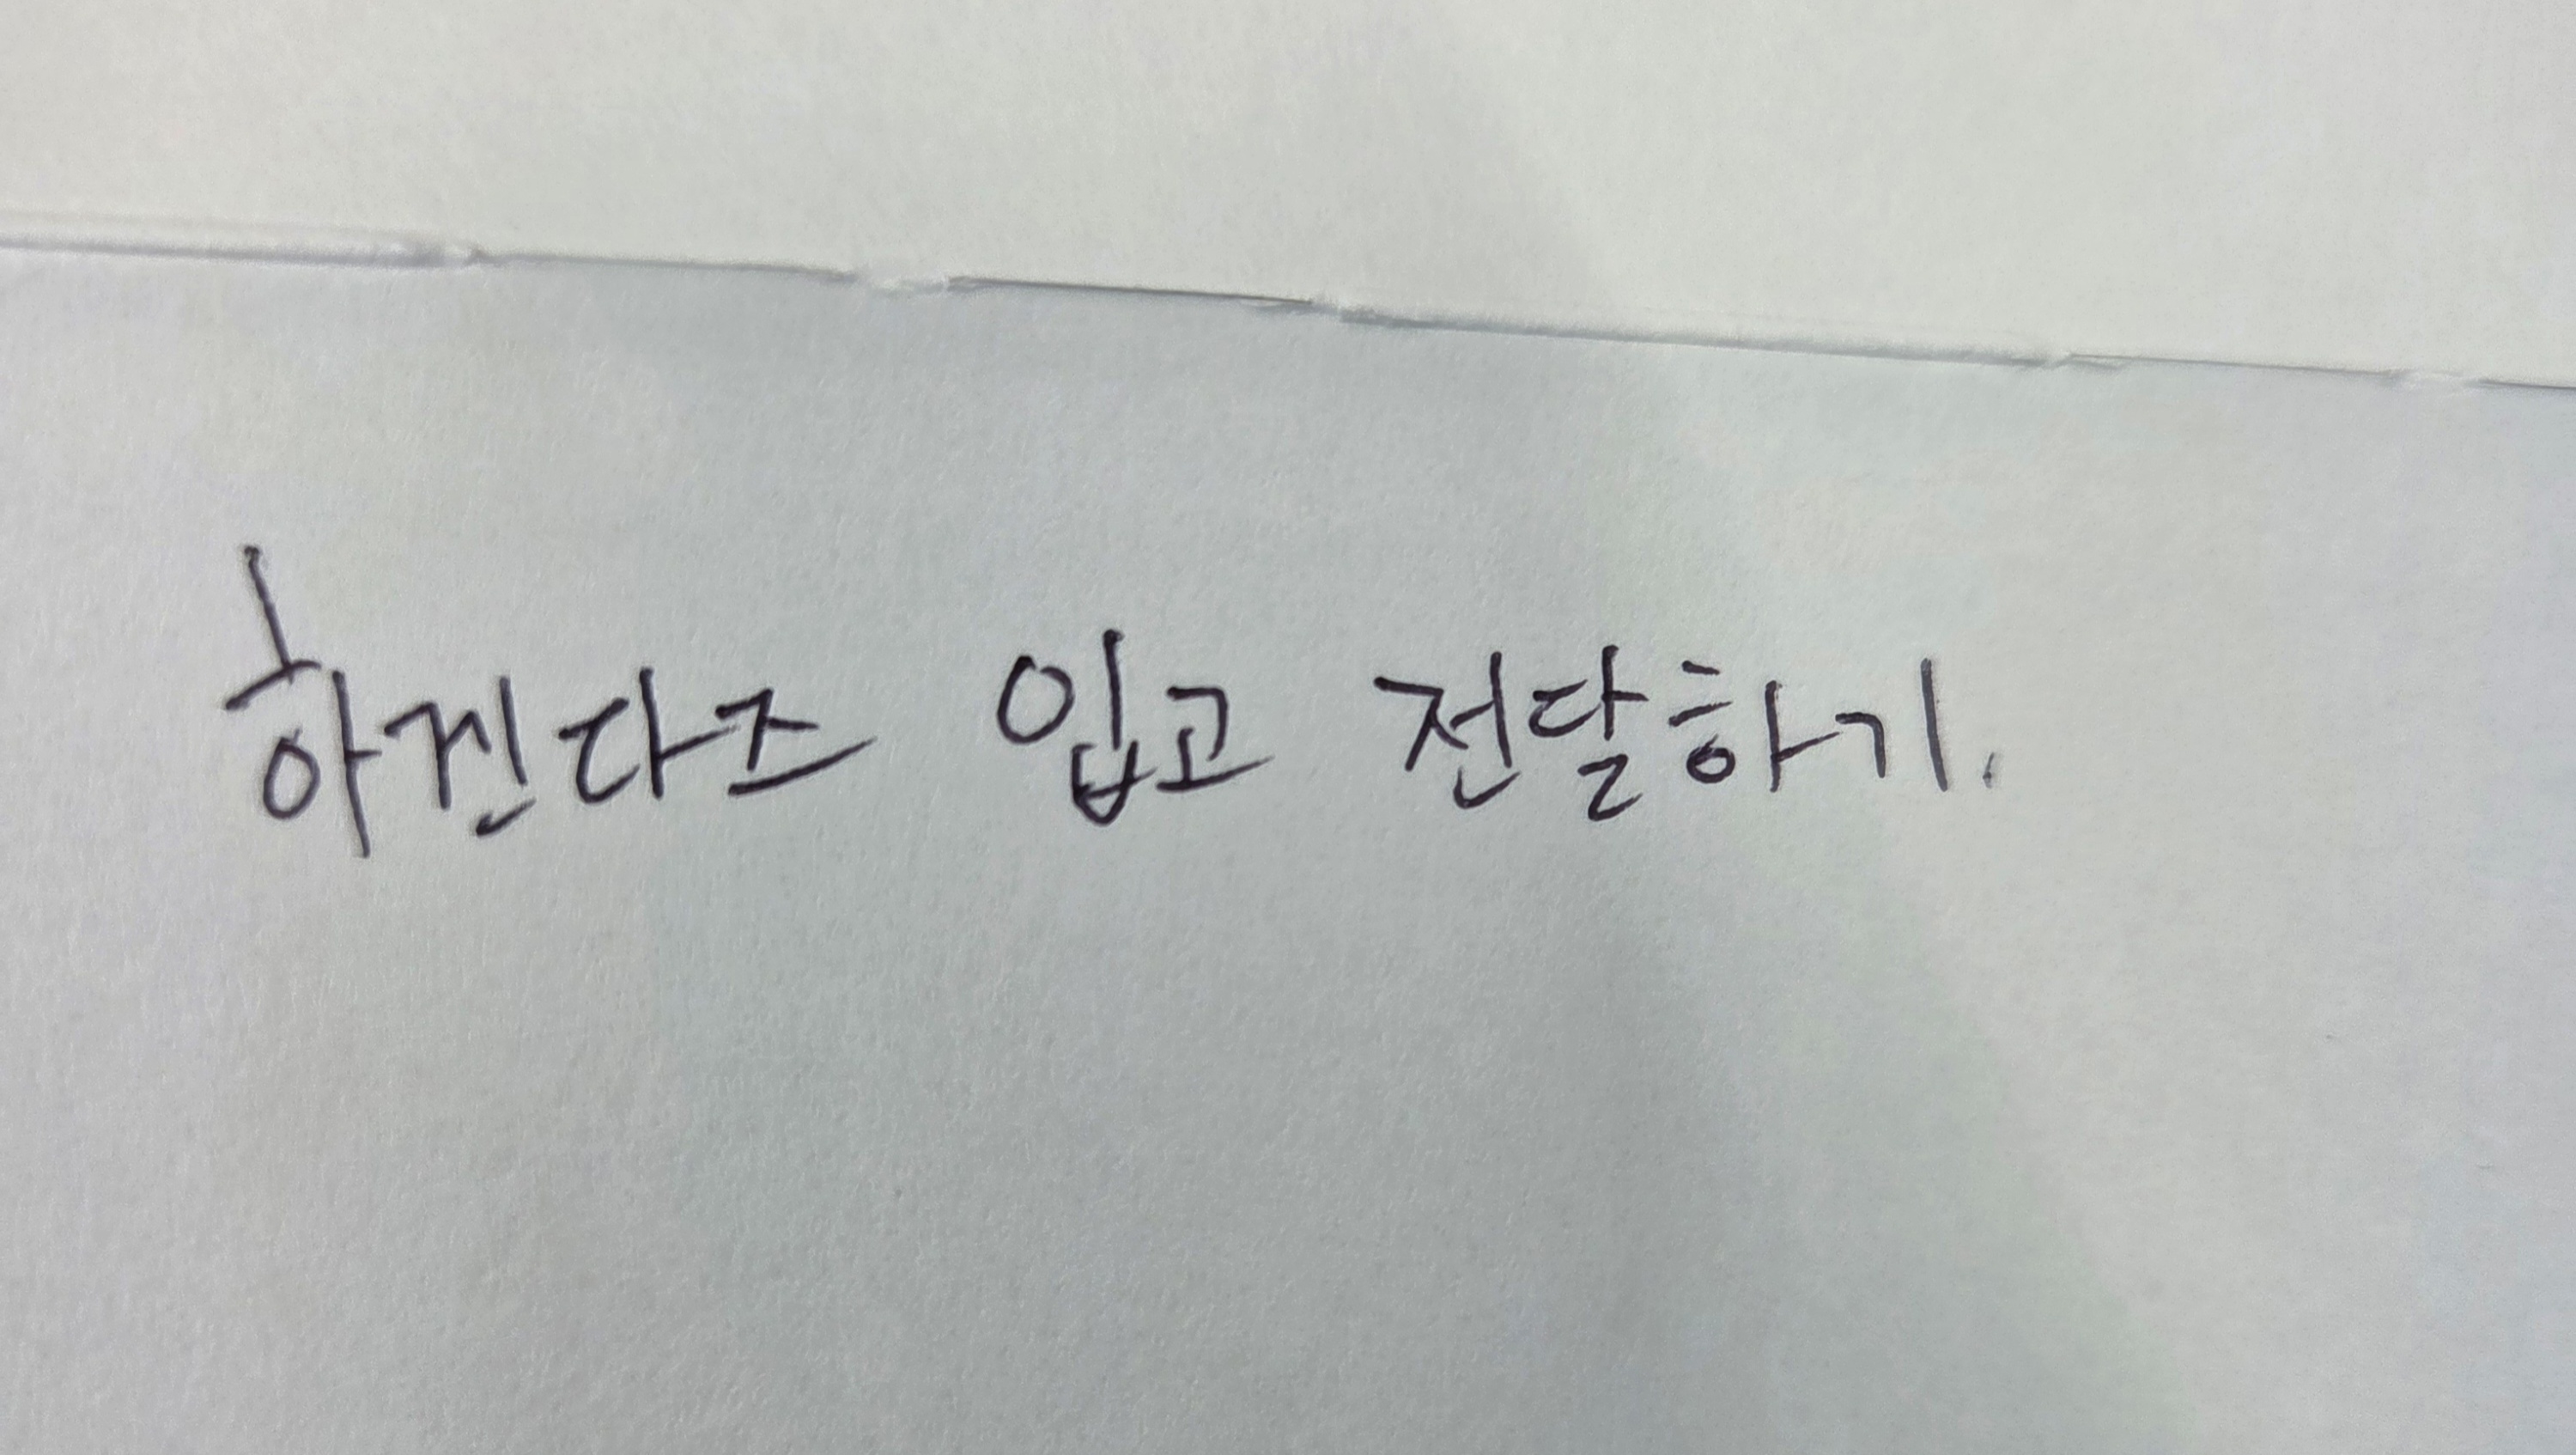 하겐다즈 입고 전달하기.